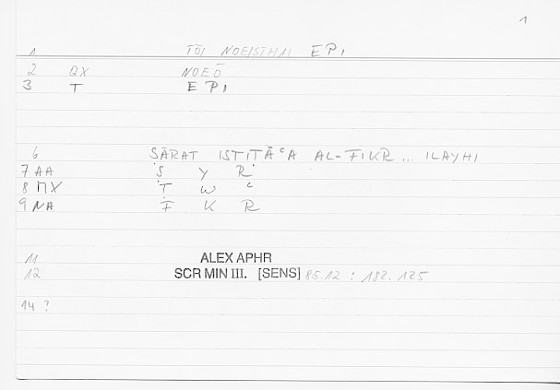 1
1 TÔI NOEISTHAI EPI
2 QX NOEÔ
3 T EPI
6 ṢĀRAT ISTIṬĀᶜA AL-FIKR... ILAYHI
7 AA Ṣ Y R
8 ΠX Ṭ W ᶜ
9 NA F K R
11 ALEX APHR
12 SCR MIN III. [SENS] 85.12 : 182.125
14 ?